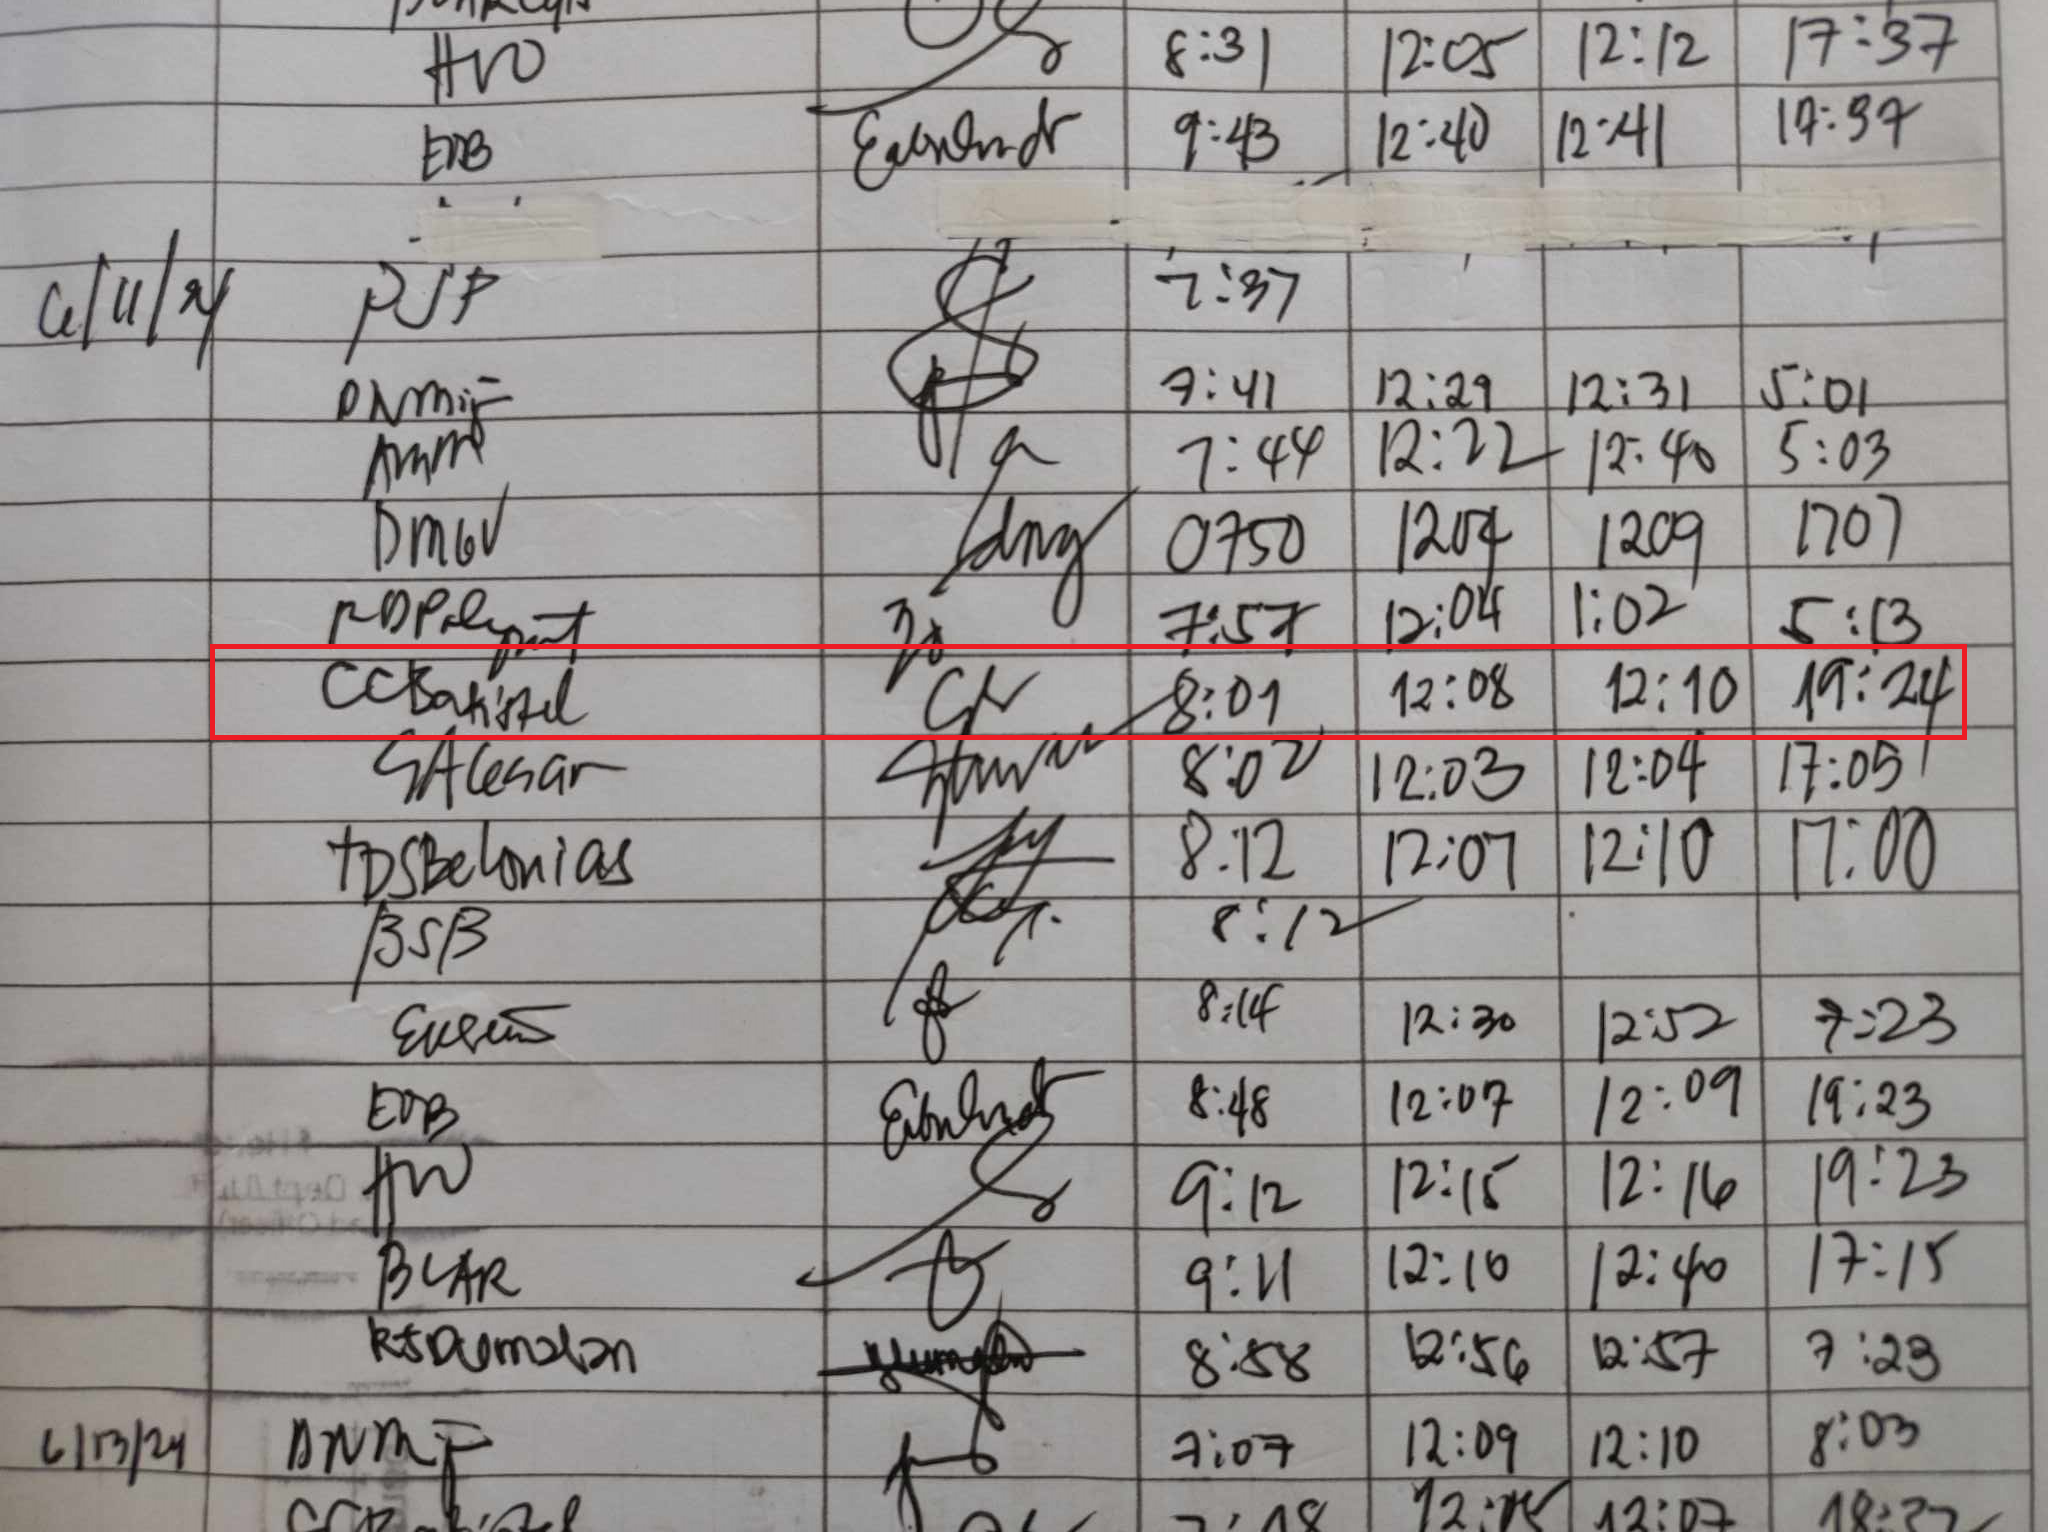 HVO 8:31 12:05 12:12 17:37
EDB 9:43 12:40 12:41 17:37
6/11/24 PJP 7:37
DNMij 7:41 12:29 12:31 5:01
7:44 12:22 12:40 5:03
DMGV dmg 0750 1204 1209 1707
7:57 12:04 1:02 5:13
CCBatistil 8:01 12:08 12:10 19:24
SACesar 8:02 12:03 12:04 17:05
TDSBelonias 8:12 12:07 12:10 17:00
BSB 8:12
8:14 12:30 12:52 7:23
EDB 8:48 12:07 12:09 19:23
HVO 9:12 12:15 12:16 19:23
BLAR 9:11 12:10 12:40 17:15
KJDumalan 8:58 12:56 12:57 7:23
6/13/24 DNMJ 7:07 12:09 12:10 8:03
12:07